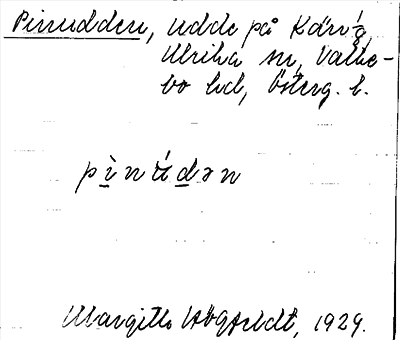 Pinudden, udde på Kärvg,
Ulrika sn, Valke-
bo hd, Österg. l.
pìnúdən
Margitta Högfeldt, 1929.